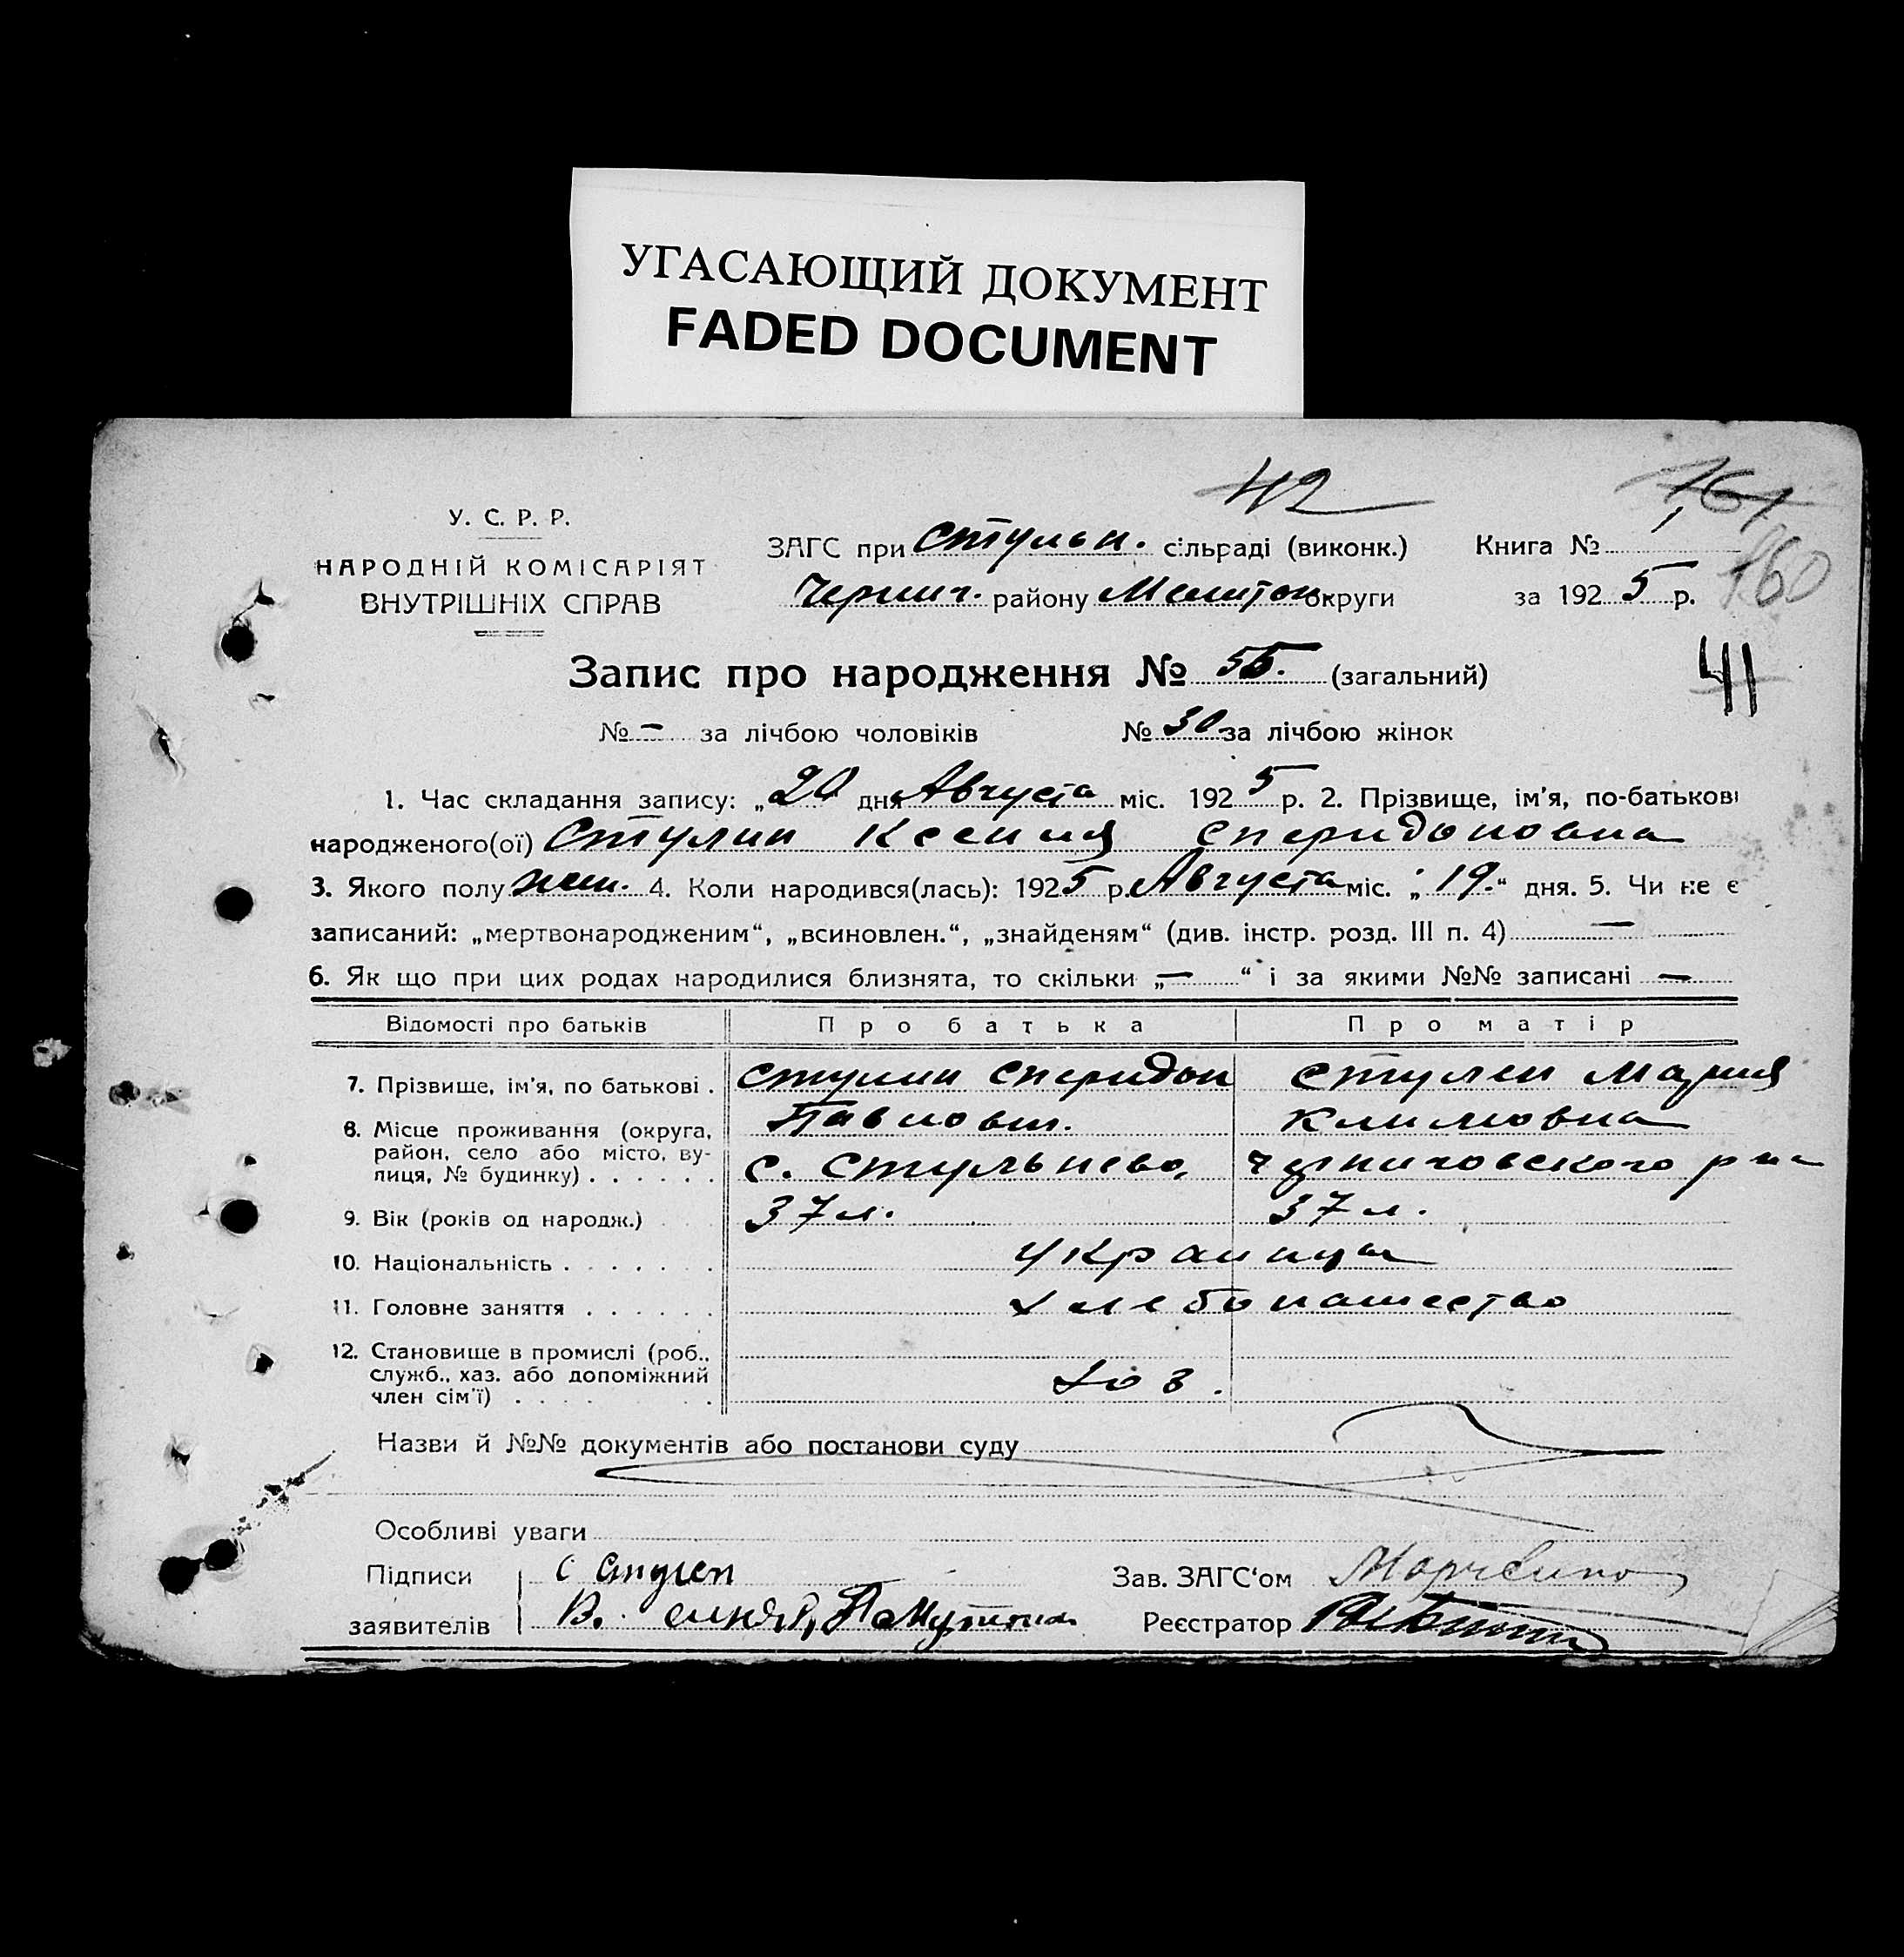 УГАСАЮЩИЙ ДОКУМЕНТ
FADED DOCUMENT
42
161
160
У. С. Р. Р.
НАРОДНІЙ КОМІСАРІЯТ
ВНУТРІШНІХ СПРАВ
ЗАГС при Стульн. сільраді (виконк.) Книга № 1
Черниг. району Мелитоп. округи за 1925 р.
41
Запис про народження № 55. (загальний)
№ — за лічбою чоловіків № 30 за лічбою жінок
1. Час складання запису: „20 дня Августа міс. 1925 р. 2. Прізвище, ім'я, по-батькові
народженого(ої) Стулин Ксения Спиридоновна
3. Якого полу жен. 4. Коли народився(лась): 1925 р. Августа міс. „19.“ дня. 5. Чи не є
записаний: „мертвонародженим“, „всиновлен.“, „знайденям“ (див. інстр. розд. III п. 4) —
6. Як що при цих родах народилися близнята, то скільки „—“ і за якими №№ записані —
Відомості про батьків Про батька Про матір
7. Прізвище, ім'я, по батькові . Стулин Спиридон Стулен Мария
Павлович. Климовна
8. Місце проживання (округа,
район, село або місто, ву-
лиця, № будинку) . . . . . . с. Стульнево, Черниговского р на
9. Вік (років од народж.) 37 л. 37 л.
10. Національність . . . . . . . Украинцы
11. Головне заняття . . . . . . Хлебопашество
12. Становище в промислі (роб.,
служб., хаз. або допоміжний
член сім'ї) . . . . Хоз.
Назви й №№ документів або постанови суду
Особливі уваги
Підписи С Стулен Зав. ЗАГС'ом
заявителів В. Реєстратор